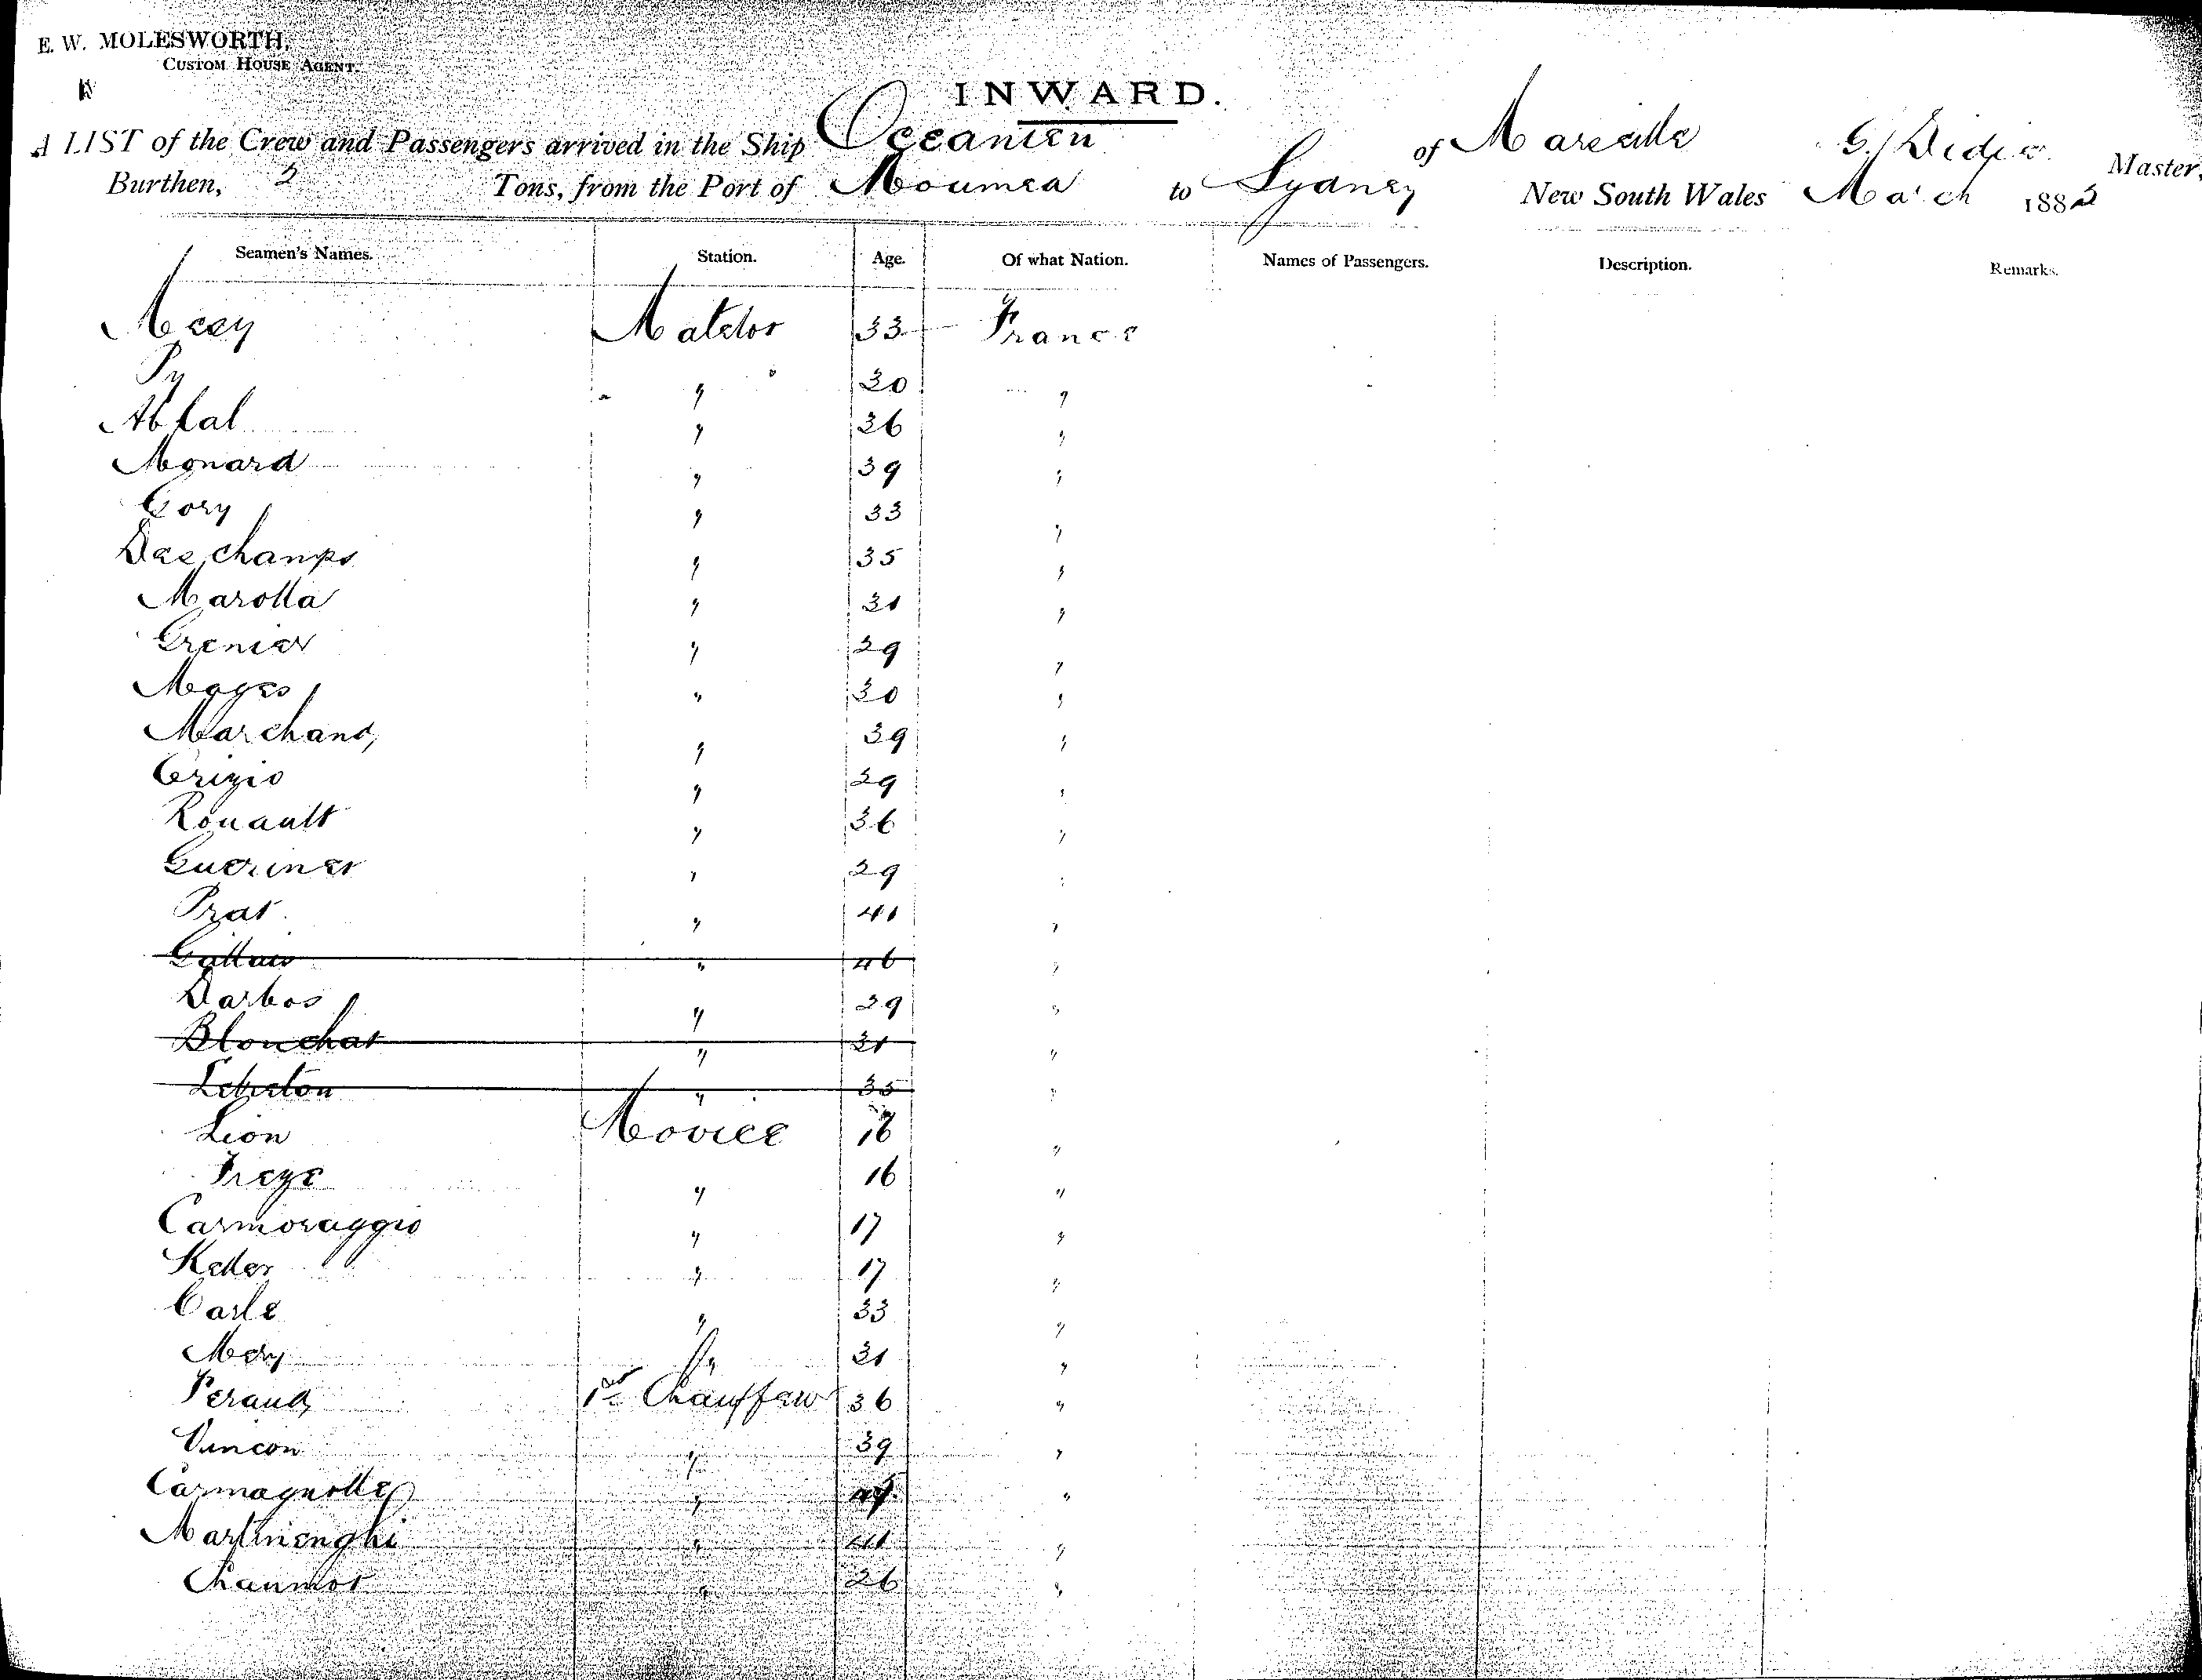 E. W. MOLESWORTH,
CUSTOM HOUSE AGENT.
INWARD.
A LIST of the Crew and Passengers arrived in the Ship Oceanien of Marseille G. Didier Master,
Burthen, Tons, from the Port of Noumea to Sydney New South Wales March 188
Seamen's Names. Station. Age. Of what Nation. Names of Passengers. Description. Remarks.
Matelot 33 France
Py " 30 "
Abbal " 36 "
Monard " 39 "
Gory " 33 "
Deschamps " 35 "
Marotta " 31 "
Grenier " 29 "
Mages " 30 "
Marchand " 39 "
" 29 "
Rouault " 36 "
Guerinet " 29 "
Prat " 41 "
" 46 "
Darbos " 29 "
Blonchat " 31 "
Lebreton " 35 "
Lion Novice 16 "
" 16 "
Carmoraggio " 17 "
Keller " 17 "
Carle " 33 "
Mery " 31 "
Peraud Chauffeur 36 "
Vincon " 39 "
Carmagnolle " "
Martinenghi " 41 "
Chaumot " 26 "